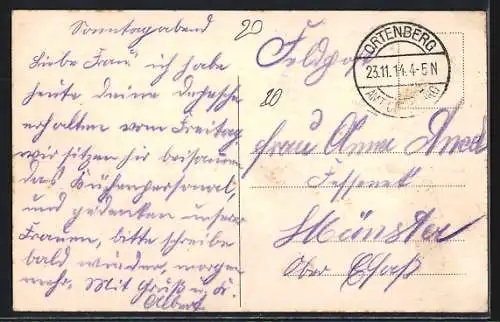 Sonntagabend
Liebe Frau ich habe
heute deine depesche
erhalten vom Freitag
wir sitzen hir beisamen
das Küchenpersonal,
und gedenken unserer
Frauen, bitte schreibe
bald wieder, morgen
mehr. Mit Gruß u. K.
Albert
20
20
Feldpost
ORTENBERG
23.11.14.4-5N
Frau Anna
Münster
Ober Elsaß